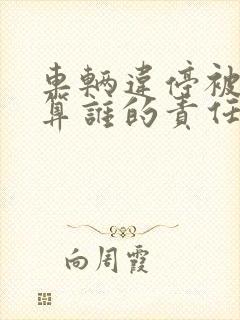 車輛違停被
算誰的責任
向周霞